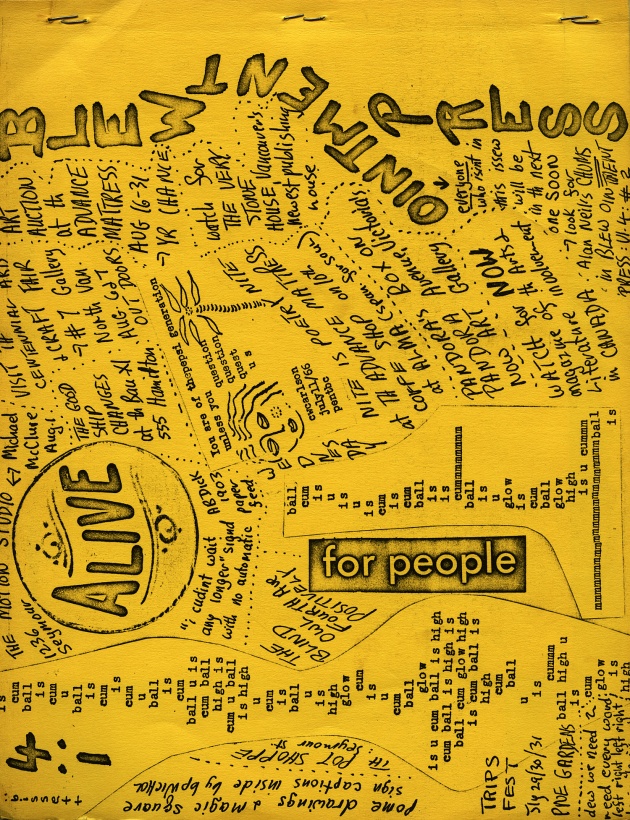 BLEWENTMENT PRESS
OINTMENT
VISIT TH
ART
CENTENNIAL ARD
AUCTION
+ CRAFT FAIR
at th
# 7 Gallery
ADVANCE
Van
MATTRESS
THE GOOD
SHIP
CHANGES
North
Aug 6-7
AUG 16-31
at th Bau-Xi
OUT DOORS
7 YR CHANCE
555 Hamilton
THE MOTION STUDIO
Michael
McClure
Aug.1
1236
Seymour
watch for
THE VERY
STONE
HOUSE Vancouver's
newest publishing
house
everyone
who isnt in
this issew
will be
in th next
one SOON
look for
Alan Neil's CHIMS
in BLEW OINTMENT
PRESS VI. 4 # 2
WEDNESDAY NITE IS POETRY NITE
at TH ADVANCE MATTRESS
COFFE SHOP on 10th
at ALMA
PANDORA'S BOX on
Avenue Victoria
PANDORA Gallery
PANDORA ART NOW
NOW
WATCH for th Artist
magazine of Involvement
Literature
in CANADA
You are of thepepst generation
unless you question
question
quest
u s
cwcarlson
July,1,1966
pentbc
ALIVE
AB DICK
1903
paper
feed
"i cudint wait
any longer" signd
with no automatic
THE
BLIND
OWL
FOURTH AVE
POSITIVELY
for people
ball
cum
is
u
is
u
is
cum
is
cum
ball
is
cummmmmmmmmm
ball
is
u
glow
is
cum
ball
glow
high
is u cummm
mmmmmmmmmmmmmmmmmmmmmmmball
is
is
cum
ball
is
cum
u
ball
is
cum
is
cum
u
ball
is
cum
ball u is
cum ball
high is
cum u ball
is high
u
ball
is
high
glow
cum
u
is
cum
ball
glow
is u cum ball is high
cum ball u high is
cum glow high
is cum ball is
high
cum
ball
u
is
cummm
ball high u
is
4:1
TH POT SHOPPE
Seymour st
Pome drawings & magic square
sign captions inside by bpNichol
TRIPS
FEST
Jly 29/30/31
PNE GARDENS
dew we need 2 cum
need even words, glow
left right left right